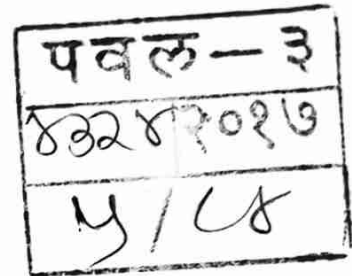 पवल - ३
४३२४ २०१७
५/८४